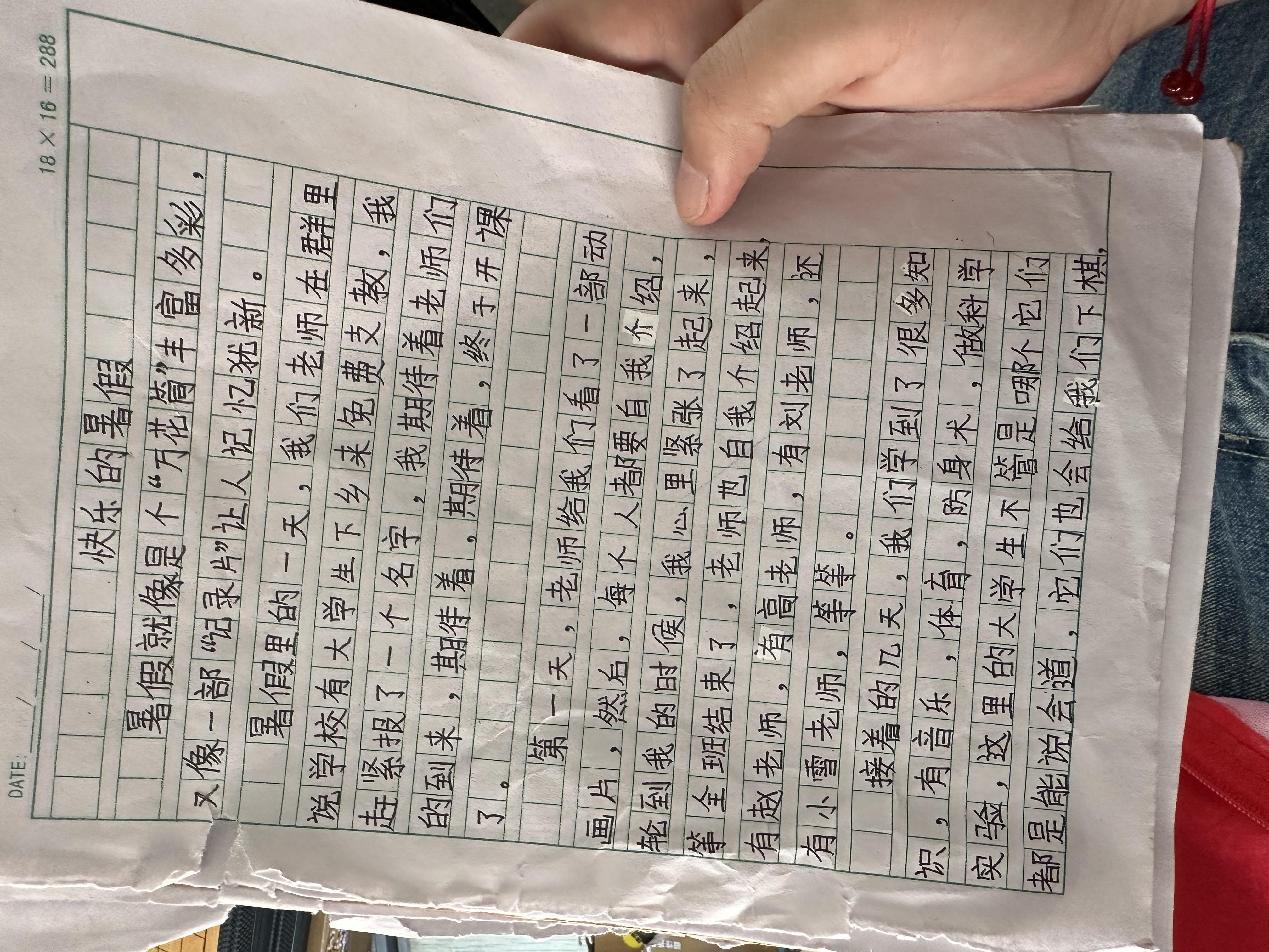 DATE: / /
18×16=288
快乐的暑假
暑假就像是个“万花筒”丰富多彩，
又像一部“记录片”让人记忆犹新。
暑假里的一天，我们老师在群里
说学校有大学生下乡来免费支教，我
赶紧报了一个名字，我期待着老师们
的到来，期待着，期待着，终于开课
了。
第一天，老师给我们看了一部动
画片，然后，每个人都要自我介绍，
轮到我的时候，我心里紧张了起来，
等全班结束了，老师也自我介绍起来，
有赵老师，有高老师，有刘老师，还
有小雪老师，等等。
接着的几天，我们学到了很多知
识，有音乐，体育，防身术，做科学
实验，这里的大学生不管是哪个它们
都是能说会道，它们也会给我们下棋，